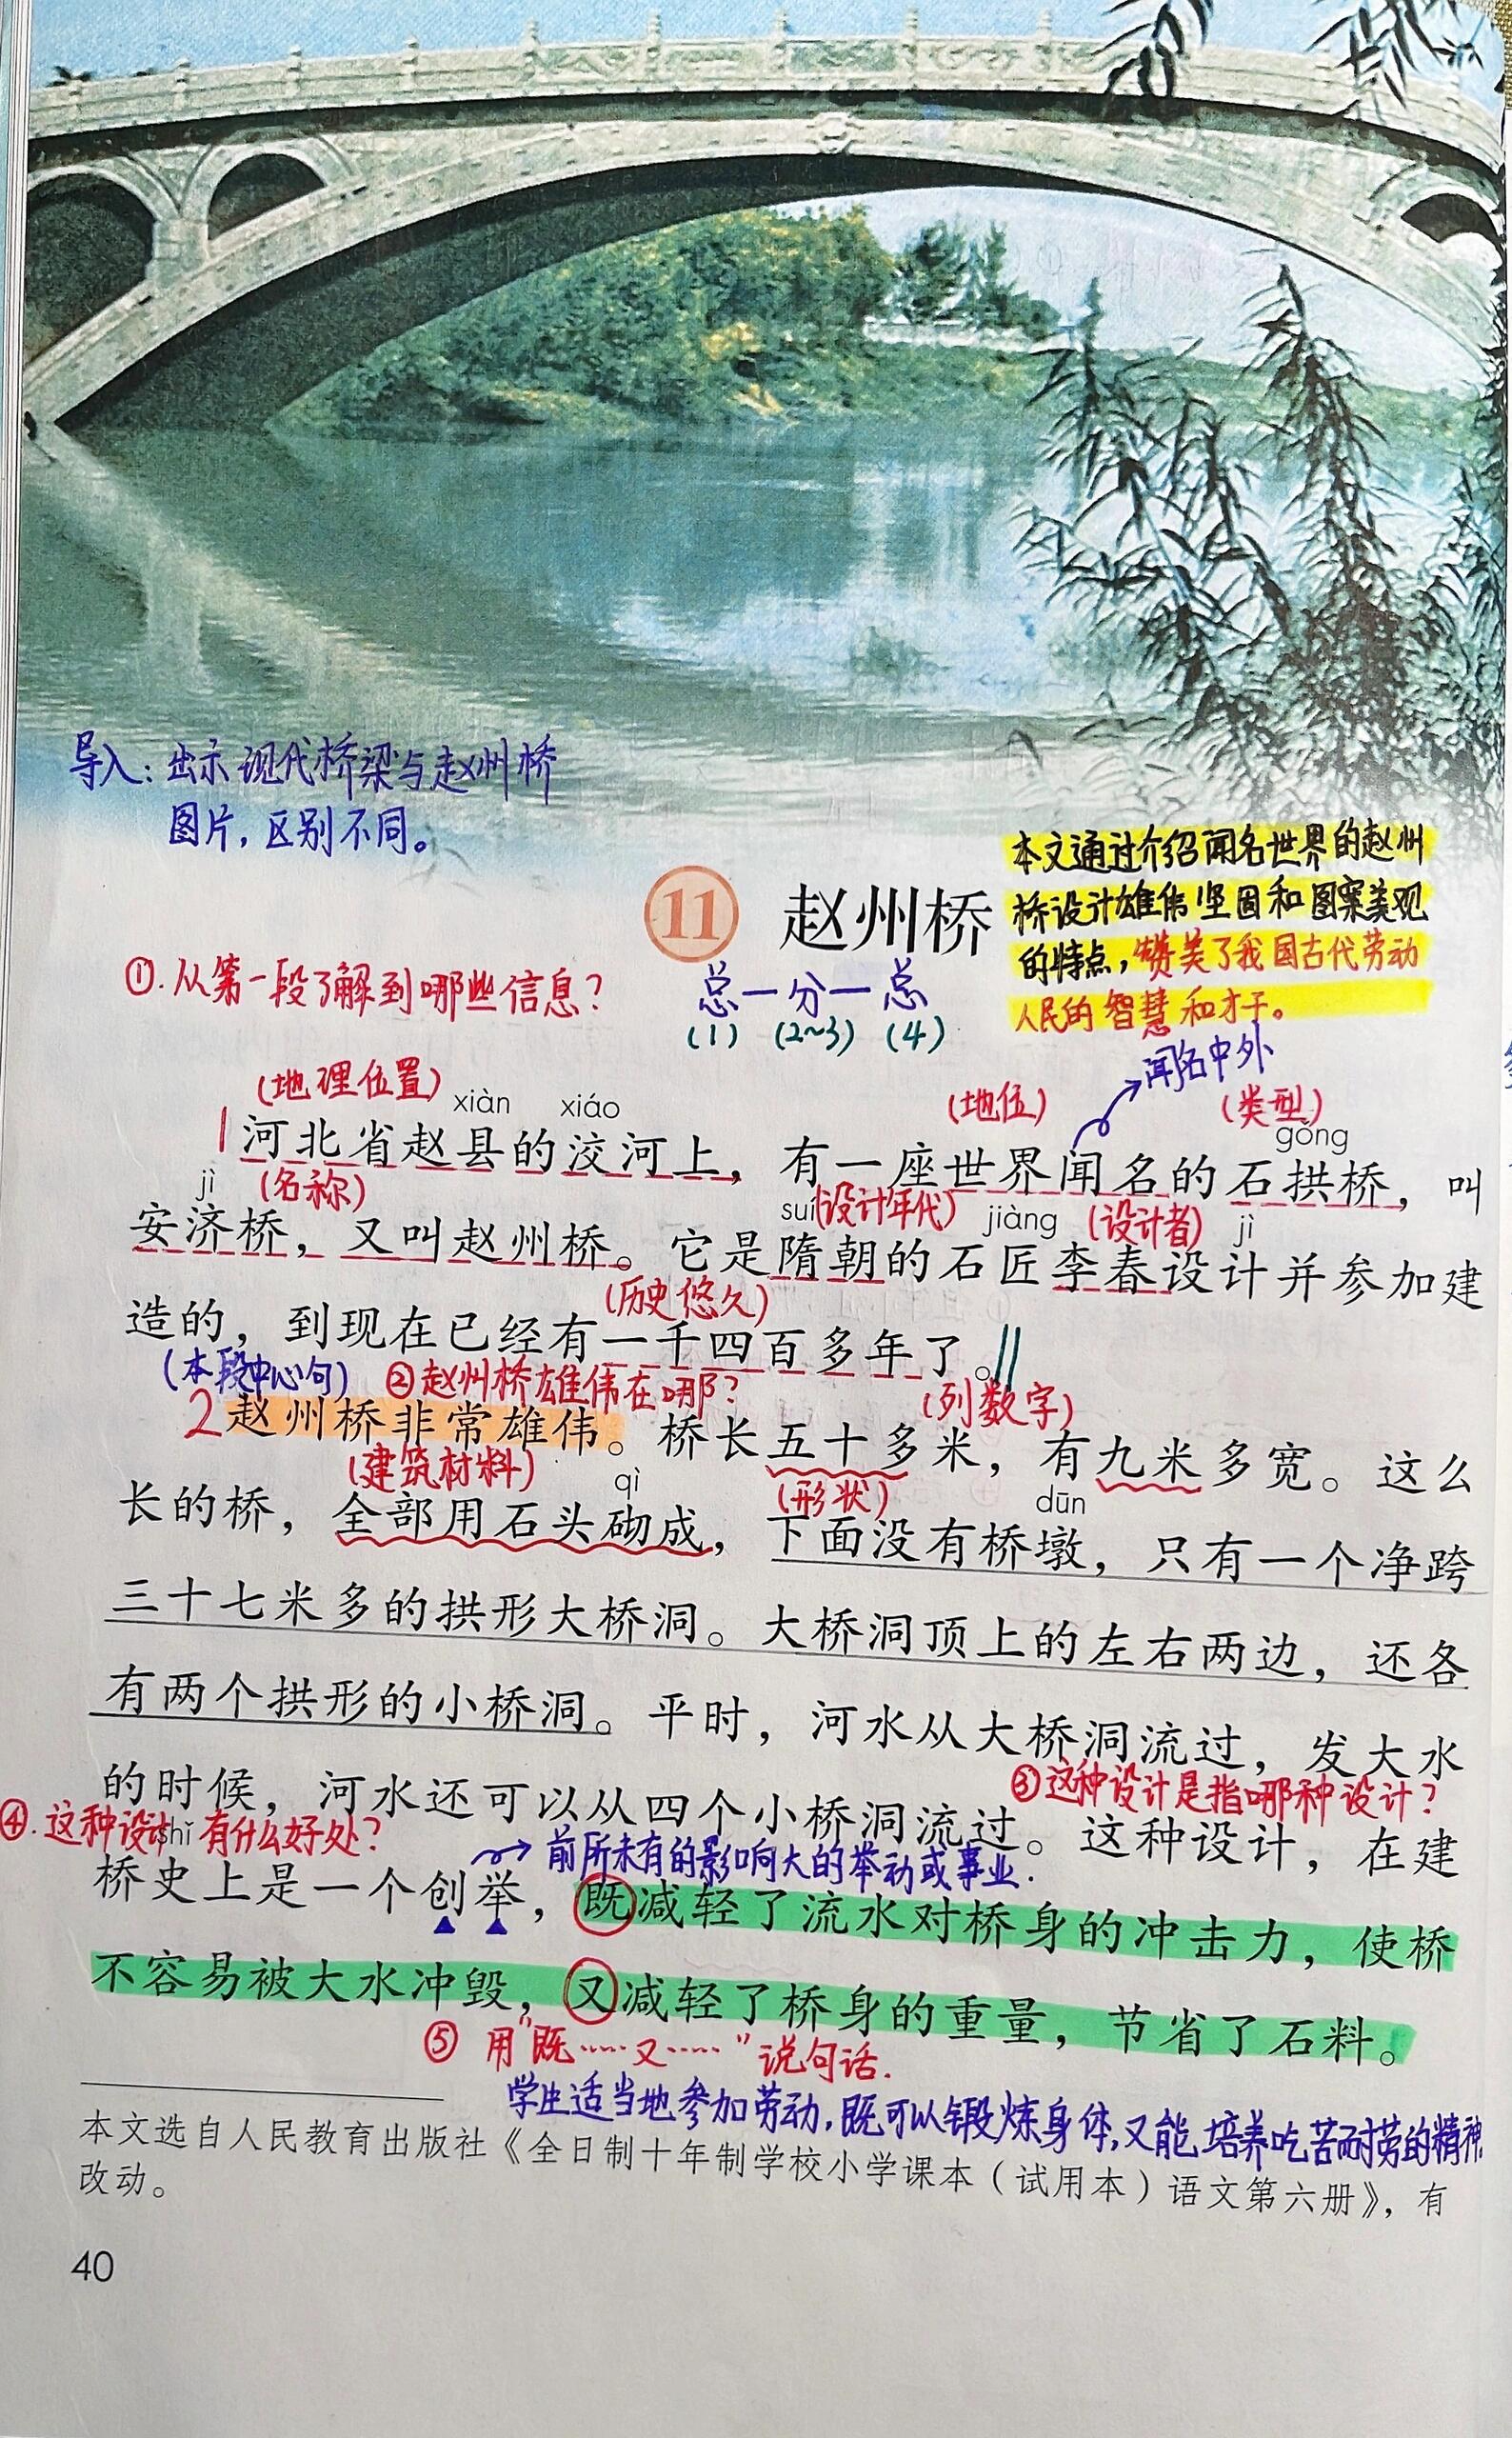 导入：出示现代桥梁与赵州桥
图片，区别不同。
本文通过介绍闻名世界的赵州
桥设计雄伟坚固和图案美观
的特点，赞美了我国古代劳动
人民的智慧和才干。
11 赵州桥
①.从第一段了解到哪些信息？
总一分一总
(1) (2~3) (4)
闻名中外
(地理位置) (地位) (类型)
xiàn xiáo gǒng
1河北省赵县的洨河上，有一座世界闻名的石拱桥，叫
jì (名称) suí (设计年代) jiàng (设计者) jì
安济桥，又叫赵州桥。它是隋朝的石匠李春设计并参加建
(历史悠久)
造的，到现在已经有一千四百多年了。
(本段中心句) ②赵州桥雄伟在哪？ (列数字)
2赵州桥非常雄伟。桥长五十多米，有九米多宽。这么
(建筑材料) qì (形状) dūn
长的桥，全部用石头砌成，下面没有桥墩，只有一个净跨
三十七米多的拱形大桥洞。大桥洞顶上的左右两边，还各
有两个拱形的小桥洞。平时，河水从大桥洞流过，发大水
的时候，河水还可以从四个小桥洞流过。这种设计，在建
③这种设计是指哪种设计？
④.这种设计有什么好处？
shǐ
前所未有的影响大的举动或事业.
桥史上是一个创举，既减轻了流水对桥身的冲击力，使桥
不容易被大水冲毁，又减轻了桥身的重量，节省了石料。
⑤ 用"既……又……"说句话.
学生适当地参加劳动，既可以锻炼身体，又能培养吃苦耐劳的精神
本文选自人民教育出版社《全日制十年制学校小学课本（试用本）语文第六册》，有
改动。
40